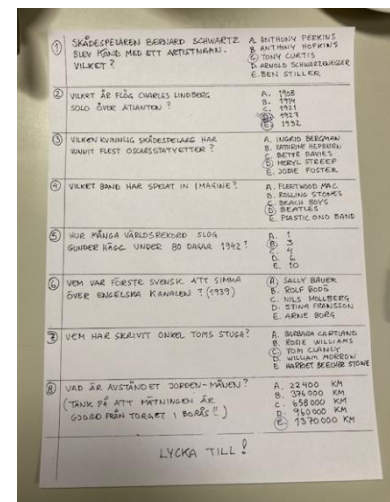 ① SKÅDESPELAREN BERNARD SCHWARTZ
BLEV KÄND MED ETT ARTISTNAMN.
VILKET?
A. ANTHONY PERKINS
B. ANTHONY HOPKINS
C. TONY CURTIS
D. ARNOLD SCHWARZENEGGER
E. BEN STILLER
② VILKET ÅR FLÖG CHARLES LINDBERG
SOLO ÖVER ATLANTEN?
A. 1908
B. 1914
C. 1921
D. 1927
E. 1932
③ VILKEN KVINNLIG SKÅDESPELARE HAR
VUNNIT FLEST OSCARSSTATYETTER?
A. INGRID BERGMAN
B. KATHRINE HEPBURN
C. BETTE DAVIES
D. MERYL STREEP
E. JODIE FOSTER
④ VILKET BAND HAR SPELAT IN IMAGINE?
A. FLEETWOOD MAC
B. ROLLING STONES
C. BEACH BOYS
D. BEATLES
E. PLASTIC ONO BAND
⑤ HUR MÅNGA VÄRLDSREKORD SLOG
GUNDER HÄGG UNDER 80 DAGAR 1942?
A. 1
B. 3
C. 4
D. 6
E. 10
⑥ VEM VAR FÖRSTE SVENSK ATT SIMMA
ÖVER ENGELSKA KANALEN? (1939)
A. SALLY BAUER
B. ROLF BODÖ
C. NILS MOLLBERG
D. STINA FRANSSON
E. ARNE BORG
⑦ VEM HAR SKRIVIT ONKEL TOMS STUGA?
A. BARBARA CARTLAND
B. ROBIE WILLIAMS
C. TOM CLANCY
D. WILLIAM MORROW
E. HARRIET BEECHER STOWE
⑧ VAD ÄR AVSTÅNDET JORDEN-MÅNEN?
(TÄNK PÅ ATT MÄTNINGEN ÄR
GJORD FRÅN TORGET I BORÅS!!)
A. 22400 KM
B. 376000 KM
C. 658000 KM
D. 960000 KM
E. 1370000 KM
LYCKA TILL!